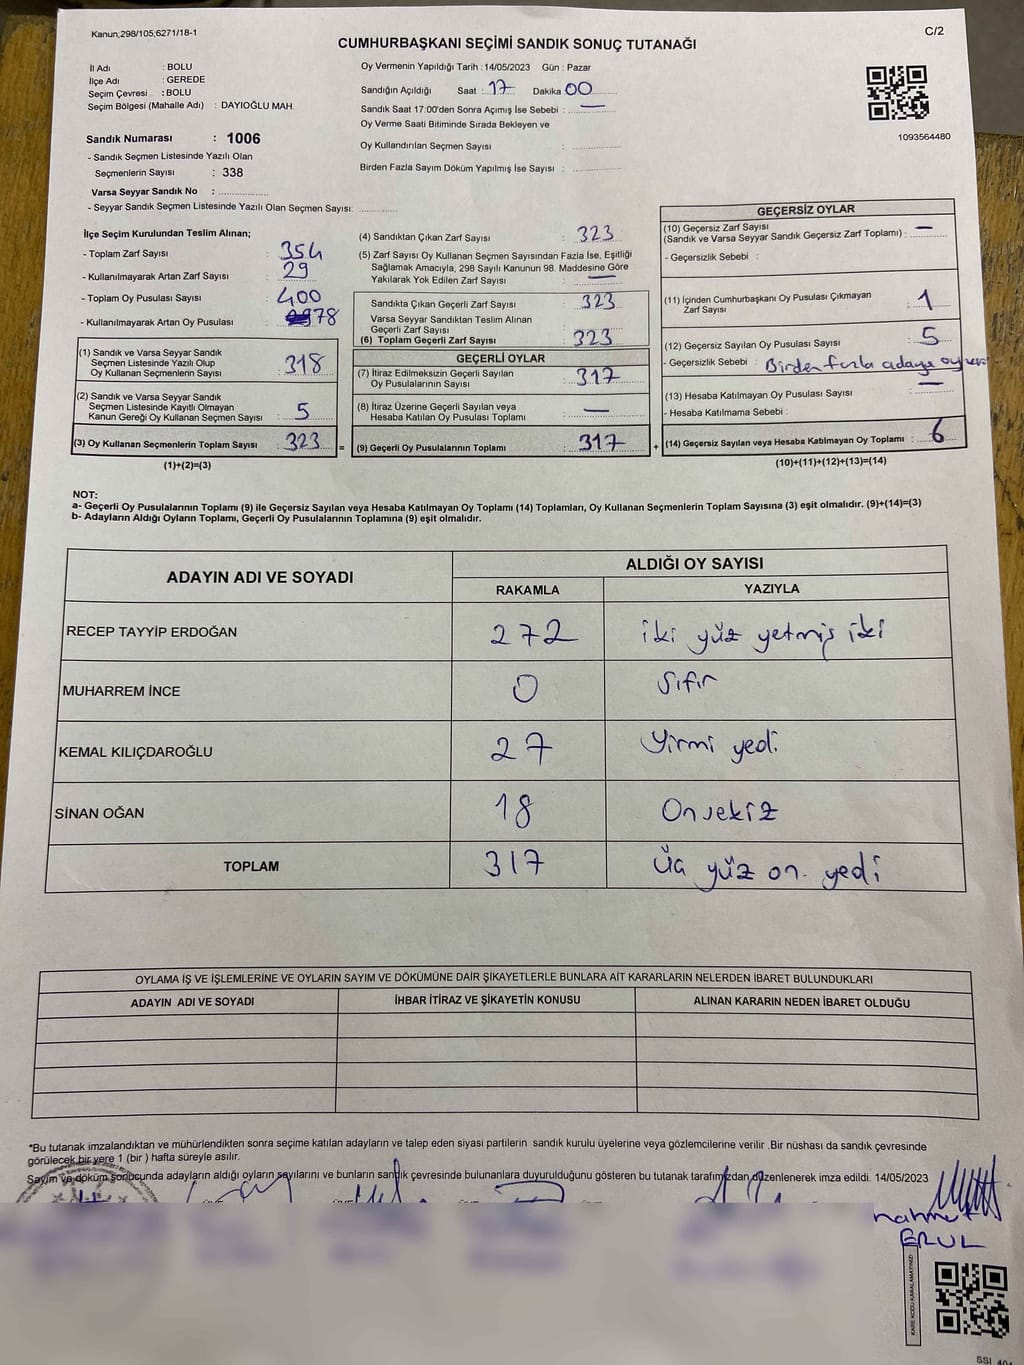 Kanun;298/105;6271/18-1
C/2
CUMHURBAŞKANI SEÇİMİ SANDIK SONUÇ TUTANAĞI
İl Adı : BOLU
İlçe Adı : GEREDE
Seçim Çevresi : BOLU
Seçim Bölgesi (Mahalle Adı) : DAYIOĞLU MAH.
Sandık Numarası : 1006
- Sandık Seçmen Listesinde Yazılı Olan
Seçmenlerin Sayısı : 338
Varsa Seyyar Sandık No :
- Seyyar Sandık Seçmen Listesinde Yazılı Olan Seçmen Sayısı:
Oy Vermenin Yapıldığı Tarih : 14/05/2023 Gün : Pazar
Sandığın Açıldığı Saat : 17 Dakika 00
Sandık Saat 17:00'den Sonra Açımış İse Sebebi : —
Oy Verme Saati Bitiminde Sırada Bekleyen ve
Oy Kullandırılan Seçmen Sayısı :
Birden Fazla Sayım Döküm Yapılmış İse Sayısı :
1093564480
İlçe Seçim Kurulundan Teslim Alınan;
- Toplam Zarf Sayısı : 354
- Kullanılmayarak Artan Zarf Sayısı : 29
- Toplam Oy Pusulası Sayısı : 400
- Kullanılmayarak Artan Oy Pusulası : 78
(1) Sandık ve Varsa Seyyar Sandık
Seçmen Listesinde Yazılı Olup
Oy Kullanan Seçmenlerin Sayısı : 318
(2) Sandık ve Varsa Seyyar Sandık
Seçmen Listesinde Kayıtlı Olmayan
Kanun Gereği Oy Kullanan Seçmen Sayısı : 5
(3) Oy Kullanan Seçmenlerin Toplam Sayısı : 323 =
(1)+(2)=(3)
(4) Sandıktan Çıkan Zarf Sayısı : 323
(5) Zarf Sayısı Oy Kullanan Seçmen Sayısından Fazla İse, Eşitliği
Sağlamak Amacıyla; 298 Sayılı Kanunun 98. Maddesine Göre
Yakılarak Yok Edilen Zarf Sayısı : —
Sandıkta Çıkan Geçerli Zarf Sayısı : 323
Varsa Seyyar Sandıktan Teslim Alınan
Geçerli Zarf Sayısı :
(6) Toplam Geçerli Zarf Sayısı : 323
GEÇERLİ OYLAR
(7) İtiraz Edilmeksizin Geçerli Sayılan
Oy Pusulalarının Sayısı : 317
(8) İtiraz Üzerine Geçerli Sayılan veya
Hesaba Katılan Oy Pusulası Toplamı : —
(9) Geçerli Oy Pusulalarının Toplamı : 317 +
GEÇERSİZ OYLAR
(10) Geçersiz Zarf Sayısı
(Sandık ve Varsa Seyyar Sandık Geçersiz Zarf Toplamı) : —
- Geçersizlik Sebebi :
(11) İçinden Cumhurbaşkanı Oy Pusulası Çıkmayan
Zarf Sayısı : 1
(12) Geçersiz Sayılan Oy Pusulası Sayısı : 5
- Geçersizlik Sebebi : Birden fazla adaya oy
(13) Hesaba Katılmayan Oy Pusulası Sayısı : —
- Hesaba Katılmama Sebebi :
(14) Geçersiz Sayılan veya Hesaba Katılmayan Oy Toplamı : 6
(10)+(11)+(12)+(13)=(14)
NOT:
a- Geçerli Oy Pusulalarının Toplamı (9) ile Geçersiz Sayılan veya Hesaba Katılmayan Oy Toplamı (14) Toplamları, Oy Kullanan Seçmenlerin Toplam Sayısına (3) eşit olmalıdır. (9)+(14)=(3)
b- Adayların Aldığı Oyların Toplamı, Geçerli Oy Pusulalarının Toplamına (9) eşit olmalıdır.
ADAYIN ADI VE SOYADI
ALDIĞI OY SAYISI
RAKAMLA YAZIYLA
RECEP TAYYİP ERDOĞAN 272 iki yüz yetmiş iki
MUHARREM İNCE 0 Sıfır
KEMAL KILIÇDAROĞLU 27 Yirmi yedi
SİNAN OĞAN 18 Onsekiz
TOPLAM 317 Üç yüz on yedi
OYLAMA İŞ VE İŞLEMLERİNE VE OYLARIN SAYIM VE DÖKÜMÜNE DAİR ŞİKAYETLERLE BUNLARA AİT KARARLARIN NELERDEN İBARET BULUNDUKLARI
ADAYIN ADI VE SOYADI İHBAR İTİRAZ VE ŞİKAYETİN KONUSU ALINAN KARARIN NEDEN İBARET OLDUĞU
*Bu tutanak imzalandıktan ve mühürlendikten sonra seçime katılan adayların ve talep eden siyasi partilerin sandık kurulu üyelerine veya gözlemcilerine verilir .Bir nüshası da sandık çevresinde
görülecek bir yere 1 (bir ) hafta süreyle asılır.
Sayım ve döküm sonucunda adayların aldığı oyların sayılarını ve bunların sandık çevresinde bulunanlara duyurulduğunu gösteren bu tutanak tarafımızdan düzenlenerek imza edildi. 14/05/2023
mahmut
ERUL
KARE KODU KARALAMAYINIZ!